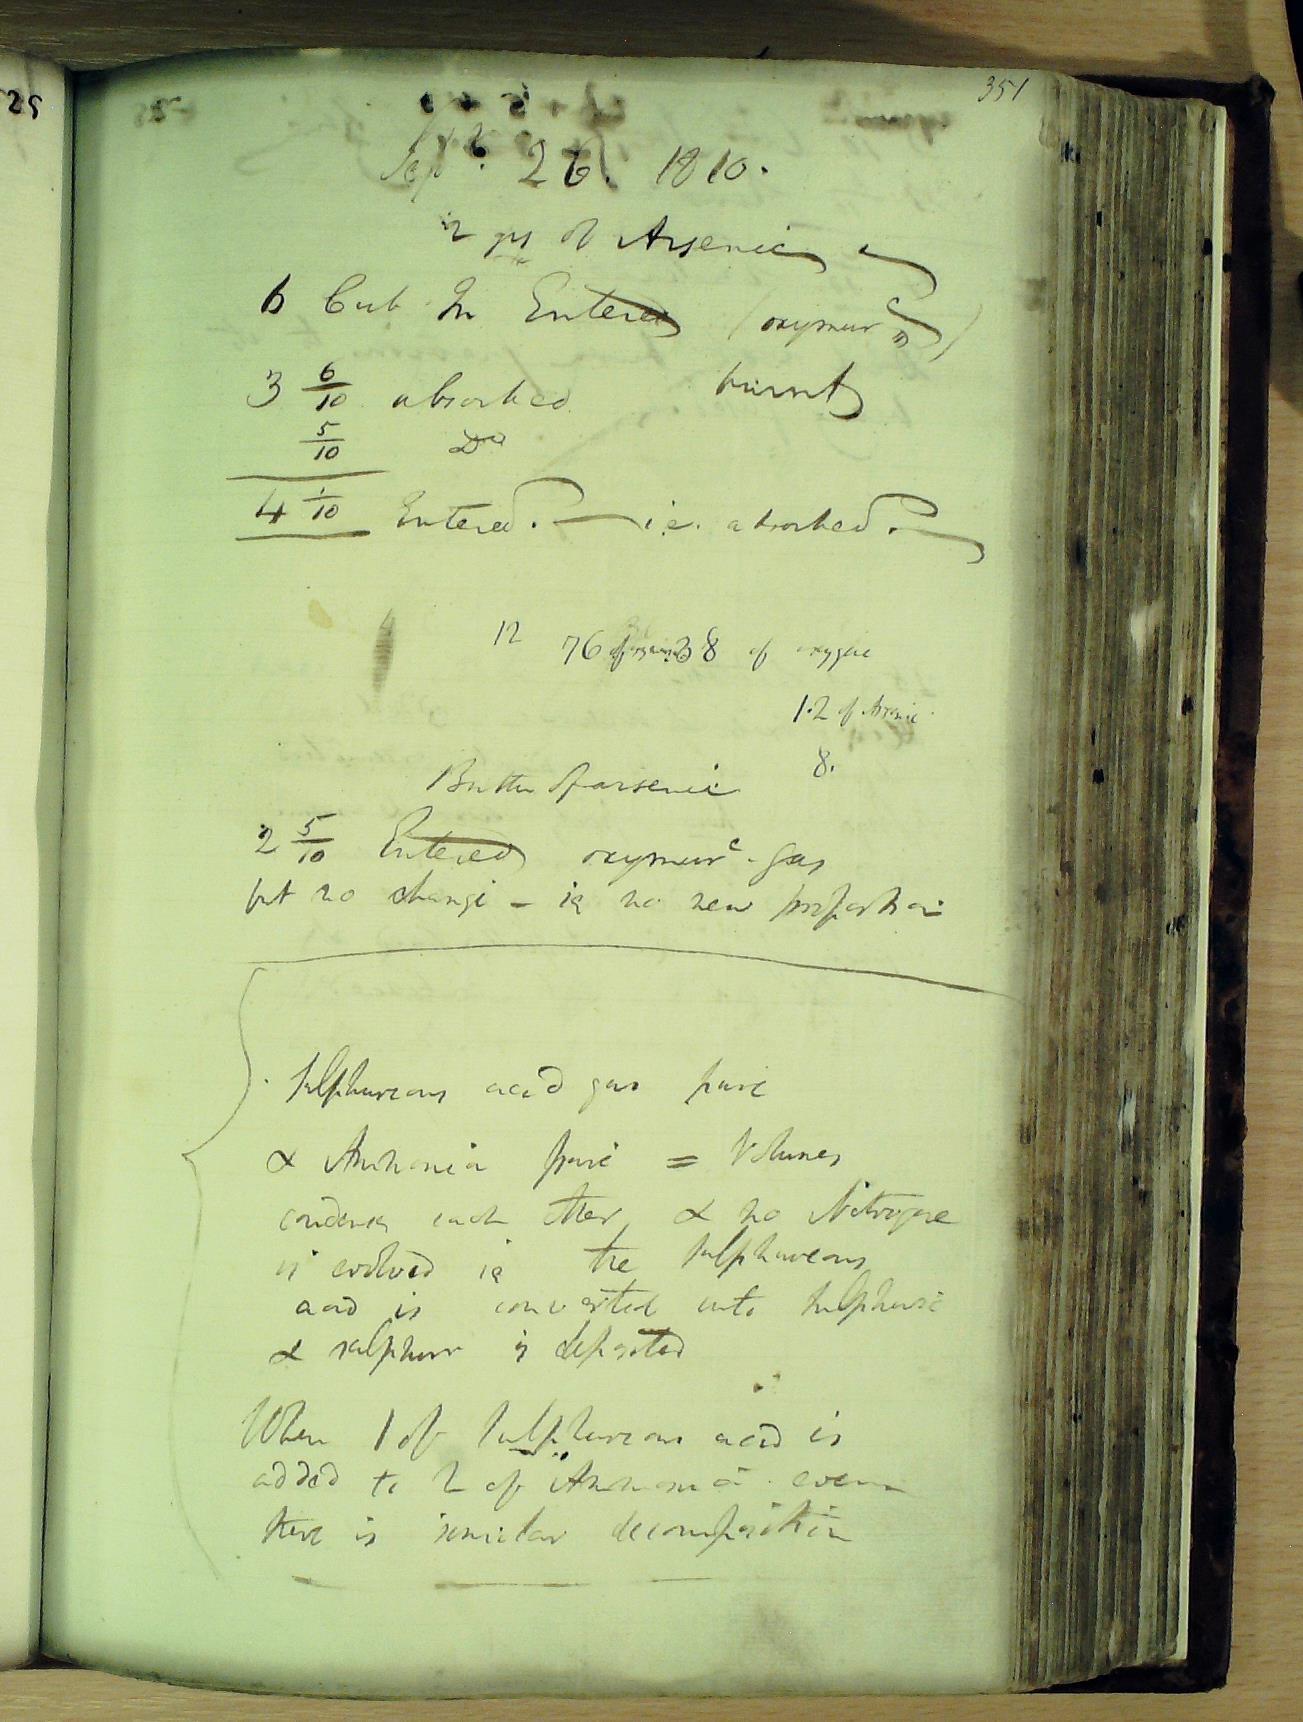 25
351
Sept.r 26. 1810.
2 grs of Arsenic
6 Cub In Entered (oxymurc)
3 6/10 absorbed burnt
5/10 Do
4 1/10 Entered. — ie. absorbed.
12 76 of 38 of oxygene
1.2 of Arsenic
8.
Butter of arsenic
2 5/10 Entered oxymurc gas
but no change - ie no new proportion
Sulphureous acid gas pure
& Ammonia pure = Volumes
condense each other & no Nitrogene
is evolved ie the sulphureous
acid is converted into sulphuric
& sulphur is deposited
When 1 of sulphureous acid is
added to 2 of Ammonia even
there is similar decomposition